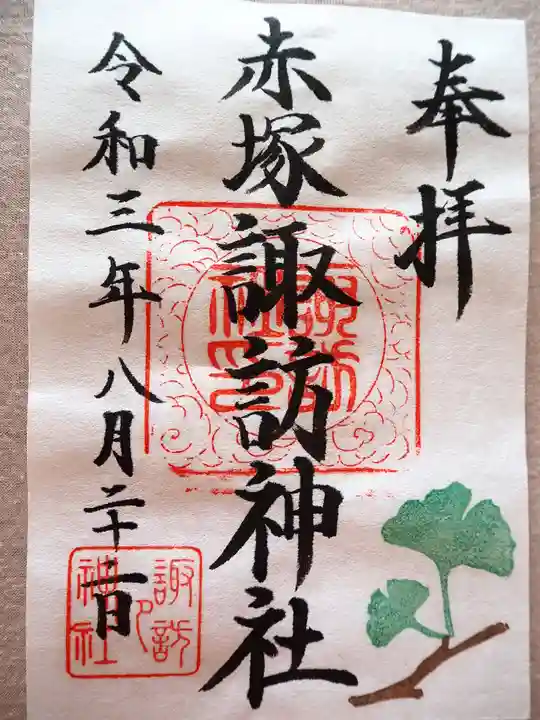 奉拝
赤塚諏訪神社
令和三年八月二十一日
諏訪
社印
諏訪
神社